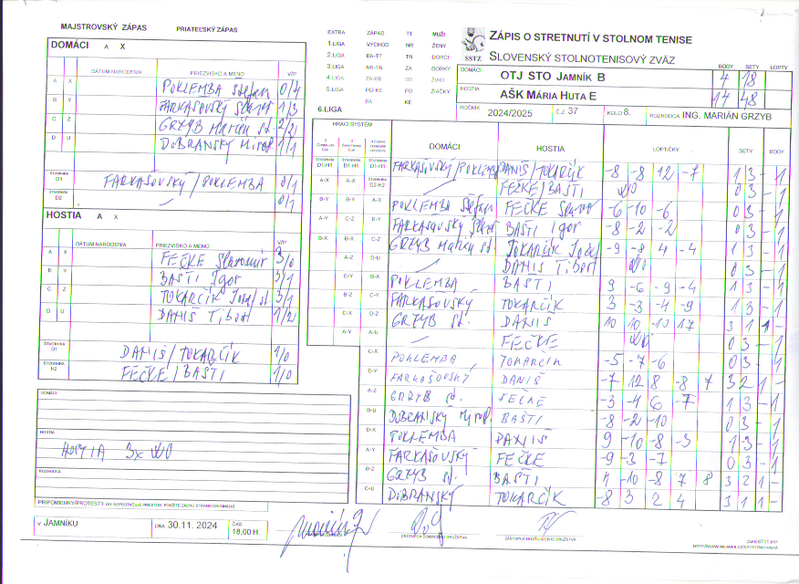 MAJSTROVSKÝ ZÁPAS PRIATEĽSKÝ ZÁPAS
EXTRA ZÁPAD TT MUŽI
1.LIGA VÝCHOD NR ŽENY
2.LIGA BA-TT TN DORCI
3.LIGA NR-TN ZA DORKY
4.LIGA ZA-BB BB ŽIACI
5.LIGA PO-KE PO ŽIAČKY
BA KE
6.LIGA
ZÁPIS O STRETNUTÍ V STOLNOM TENISE
SSTZ SLOVENSKÝ STOLNOTENISOVÝ ZVÄZ
BODY SETY LOPTY
DOMÁCI OTJ STO JAMNÍK B 4 18
HOSTIA AŠK MÁRIA HUTA E 14 48
ROČNÍK 2024/2025 Č.Z. 37 KOLO 8. ROZHODCA ING. MARIÁN GRZYB
DOMÁCI A X
DÁTUM NARODENIA PRIEZVISKO A MENO V/P
A X POKLEMBA Štefan 0/4
B Y FARKAŠOVSKÝ 1/3
C Z GRZYB Marián st. 2/2
D U DOBRANSKÝ Mirosl 1/1
ŠTVORHRA D1 FARKAŠOVSKÝ/POKLEMBA 0/1
ŠTVORHRA D2 0/1
HOSTIA A X
DÁTUM NARODENIA PRIEZVISKO A MENO V/P
A X FEČKE Slavomír 3/0
B Y BAŠTI Igor 3/1
C Z TOKARČÍK Jozef st 3/1
D U DANIŠ Tibor 1/2
ŠTVORHRA H1 DANIŠ/TOKARČÍK 1/0
ŠTVORHRA H2 FEČKE/BAŠTI 1/0
DOMÁCI
HOSTIA
HOSTIA 3x WO
ROZHODCA
HRACÍ SYSTÉM
DOMÁCI HOSTIA LOPTIČKY SETY BODY
FARKAŠOVSKÝ/POKLEMBA DANIŠ/TOKARČÍK -8 -8 12 -7 1 3 - 1
FEČKE/BAŠTI WO 0 3 - 1
A-X B-Y POKLEMBA Štefan FEČKE Slavom -6 -10 -6 0 3 - 1
FARKAŠOVSKÝ BAŠTI Igor -8 -2 -2 0 3 - 1
GRZYB Marián st. TOKARČÍK Jozef -9 -8 4 -4 1 3 - 1
DANIŠ Tibor WO 0 3 - 1
POKLEMBA BAŠTI 9 -6 -9 -4 1 3 - 1
FARKAŠOVSKÝ TOKARČÍK 3 -3 -4 -9 1 3 - 1
GRZYB st. DANIŠ 10 10 -10 17 3 1 1 -
FEČKE WO 0 3 - 1
C-X POKLEMBA TOKARČÍK -5 -7 -6 0 3 - 1
D-Y FARKAŠOVSKÝ DANIŠ -7 12 8 -8 7 3 2 1 -
A-Z GRZYB st. FEČKE -3 -4 6 -7 1 3 - 1
B-U DOBRANSKÝ Mirosl. BAŠTI -8 -2 -10 0 3 - 1
D-X POKLEMBA DANIŠ 9 -10 -8 -3 1 3 - 1
A-Y FARKAŠOVSKÝ FEČKE -9 -3 -7 0 3 - 1
B-Z GRZYB st. BAŠTI 4 -10 -8 7 8 3 2 1 -
C-U DOBRANSKÝ TOKARČÍK -8 3 2 4 3 1 1 -
V JAMNÍKU DŇA 30.11.2024 ČAS 18,00 H.